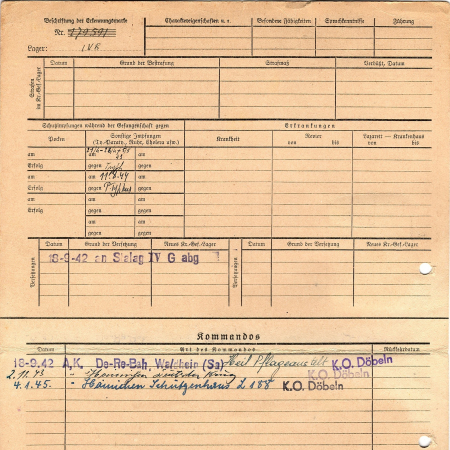 Beschriftung der Erkennungsmarke
Nr. 179591
Lager: IV B
Charaktereigenschaften u. s.
Besondere Fähigkeiten
Sprachkenntnisse
Führung
Strafen im Kr.-Gef.-Lager
Datum
Grund der Bestrafung
Strafmaß
Verbüßt, Datum
Schutzimpfungen während der Gefangenschaft gegen
Erkrankungen
Pocken
Sonstige Impfungen
(Ty.-Paraty., Ruhr, Cholera usw.)
Krankheit
Revier
von bis
Lazarett — Krankenhaus
von bis
am am am
Erfolg gegen gegen
am am am
Erfolg gegen gegen
am am am
Erfolg gegen gegen
am am am
Erfolg gegen gegen
am am
gegen gegen
Versetzungen
Datum
Grund der Versetzung
Neues Kr.-Gef.-Lager
Versetzungen
Datum
Grund der Versetzung
Neues Kr.-Gef.-Lager
18-9-42 an Stalag IV G abg
Kommandos
Datum
Art des Kommandos
Rückkehrdatum
18-9.42 A.K. De-Re-Bah, Waldheim (Sa) K.O. Döbeln
2.11.43 " K.O. Döbeln
4.1.45. " Hainichen Schützenhaus L 188 K.O. Döbeln